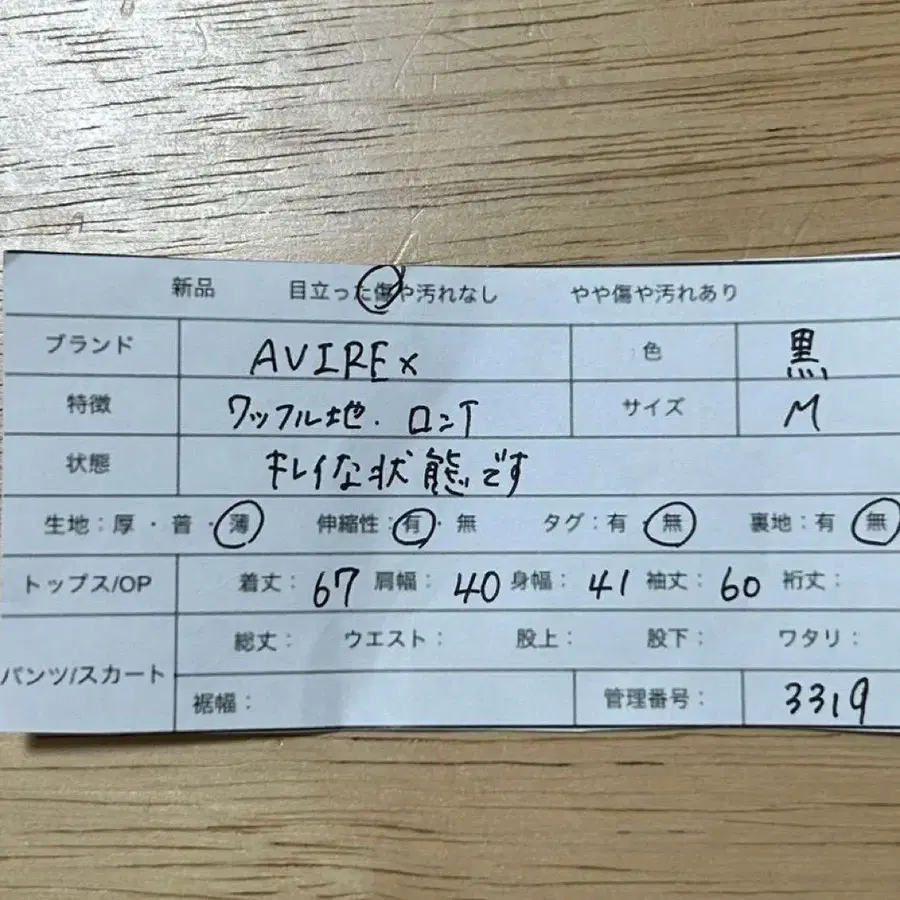 新品 目立った傷や汚れなし やや傷や汚れあり
ブランド AVIREx 色 黒
特徴 ワッフル地. ロンT サイズ M
状態 キレイな状態です
生地：厚・普・薄 伸縮性：有・無 タグ：有・無 裏地：有・無
トップス/OP 着丈：67 肩幅：40 身幅：41 袖丈：60 裄丈：
パンツ/スカート 総丈： ウエスト： 股上： 股下： ワタリ：
裾幅： 管理番号： 3319